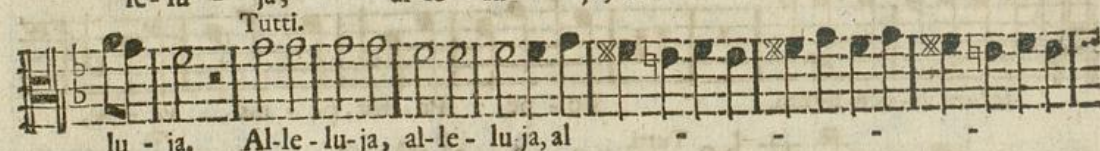 Tutti.
lu - ja. Al-le-lu-ja, al-le-lu ja, al - - - -